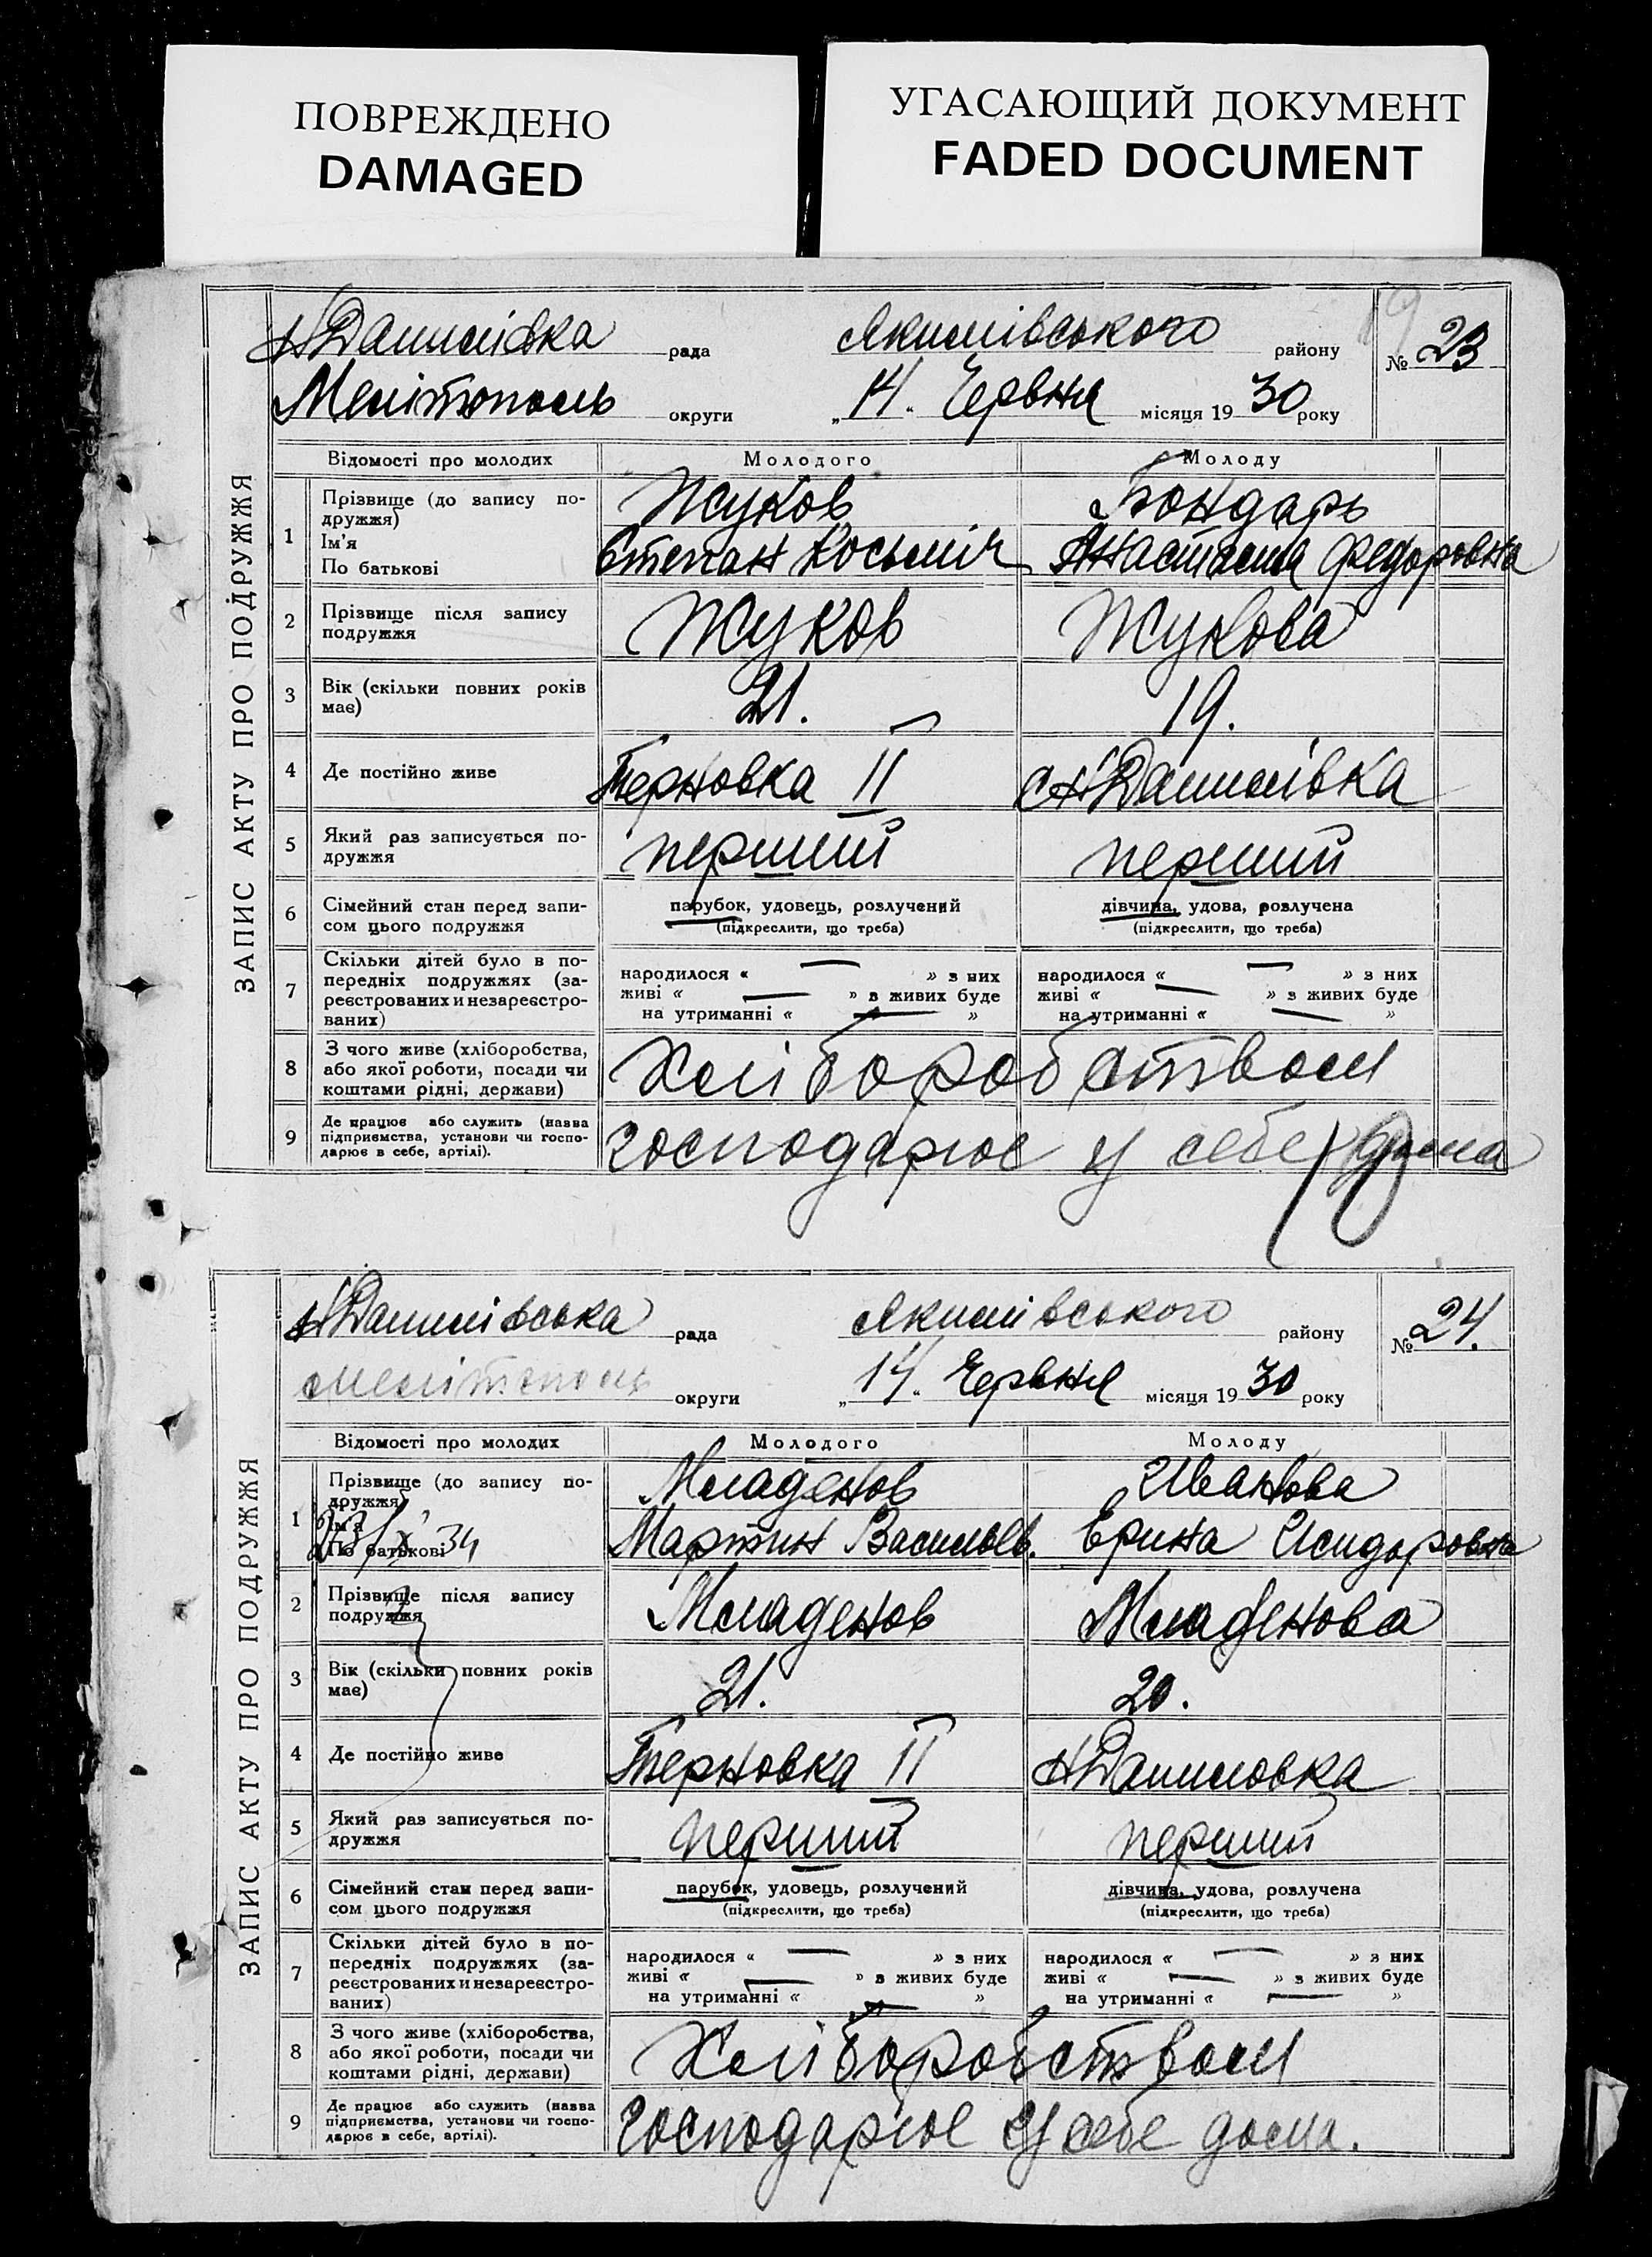 ПОВРЕЖДЕНО
DAMAGED
УГАСАЮЩИЙ ДОКУМЕНТ
FADED DOCUMENT
ЗАПИС АКТУ ПРО ПОДРУЖЖЯ
Н Данилівка рада Якимівського району № 23
Мелітополь округи „14. Червня місяця 1930 року
Відомості про молодих Молодого Молоду
1 Прізвище (до запису по-
дружжя) Жуков Бондарь
Ім'я
По батькові Степан Косьмич Анастасия Федоровна
2 Прізвище після запису
подружжя Жуков Жукова
3 Вік (скільки повних років
має) 21. 19.
4 Де постійно живе Терновка II Н Данилівка
5 Який раз записується по-
дружжя перший перший
6 Сімейний стан перед запи-
сом цього подружжя
парубок, удовець, розлучений дівчина, удова, розлучена
(підкреслити, що треба) (підкреслити, що треба)
7 Скільки дітей було в по-
передніх подружжях (за-
реєстрованих и незареєстро-
ваних)
народилося « — » з них народилося « — » з них
живі « — » в живих буде живі « — » з живих буде
на утриманні « — » на утриманні « — »
8 З чого живе (хліборобства,
або якої роботи, посади чи
коштами рідні, держави) Хліборобством
9 Де працює або служить (назва
підприємства, установи чи госпо-
дарює в себе, артілі). господарює у себе дома
ЗАПИС АКТУ ПРО ПОДРУЖЖЯ
Н Данилівська рада Якимівського району № 24.
Мелітополь округи „14. Червня місяця 1930 року
Відомості про молодих Молодого Молоду
1 Прізвище (до запису по-
дружжя) Младенов Иванова
Ім'я
По батькові Мартин Васильев. Ерина Исидоровна
2 Прізвище після запису
подружжя Младенов Младенова
3 Вік (скільки повних років
має) 21. 20.
4 Де постійно живе Терновка II Н Даниловка
5 Який раз записується по-
дружжя перший перший
6 Сімейний стан перед запи-
сом цього подружжя
парубок, удовець, розлучений дівчина, удова, розлучена
(підкреслити, що треба) (підкреслити, що треба)
7 Скільки дітей було в по-
передніх подружжях (за-
реєстрованих и незареєстро-
ваних)
народилося « — » з них народилося « — » з них
живі « — » в живих буде живі « — » з живих буде
на утриманні « — » на утриманні « — »
8 З чого живе (хліборобства,
або якої роботи, посади чи
коштами рідні, держави) Хліборобством
9 Де працює або служить (назва
підприємства, установи чи госпо-
дарює в себе, артілі). господарює у себе дома.